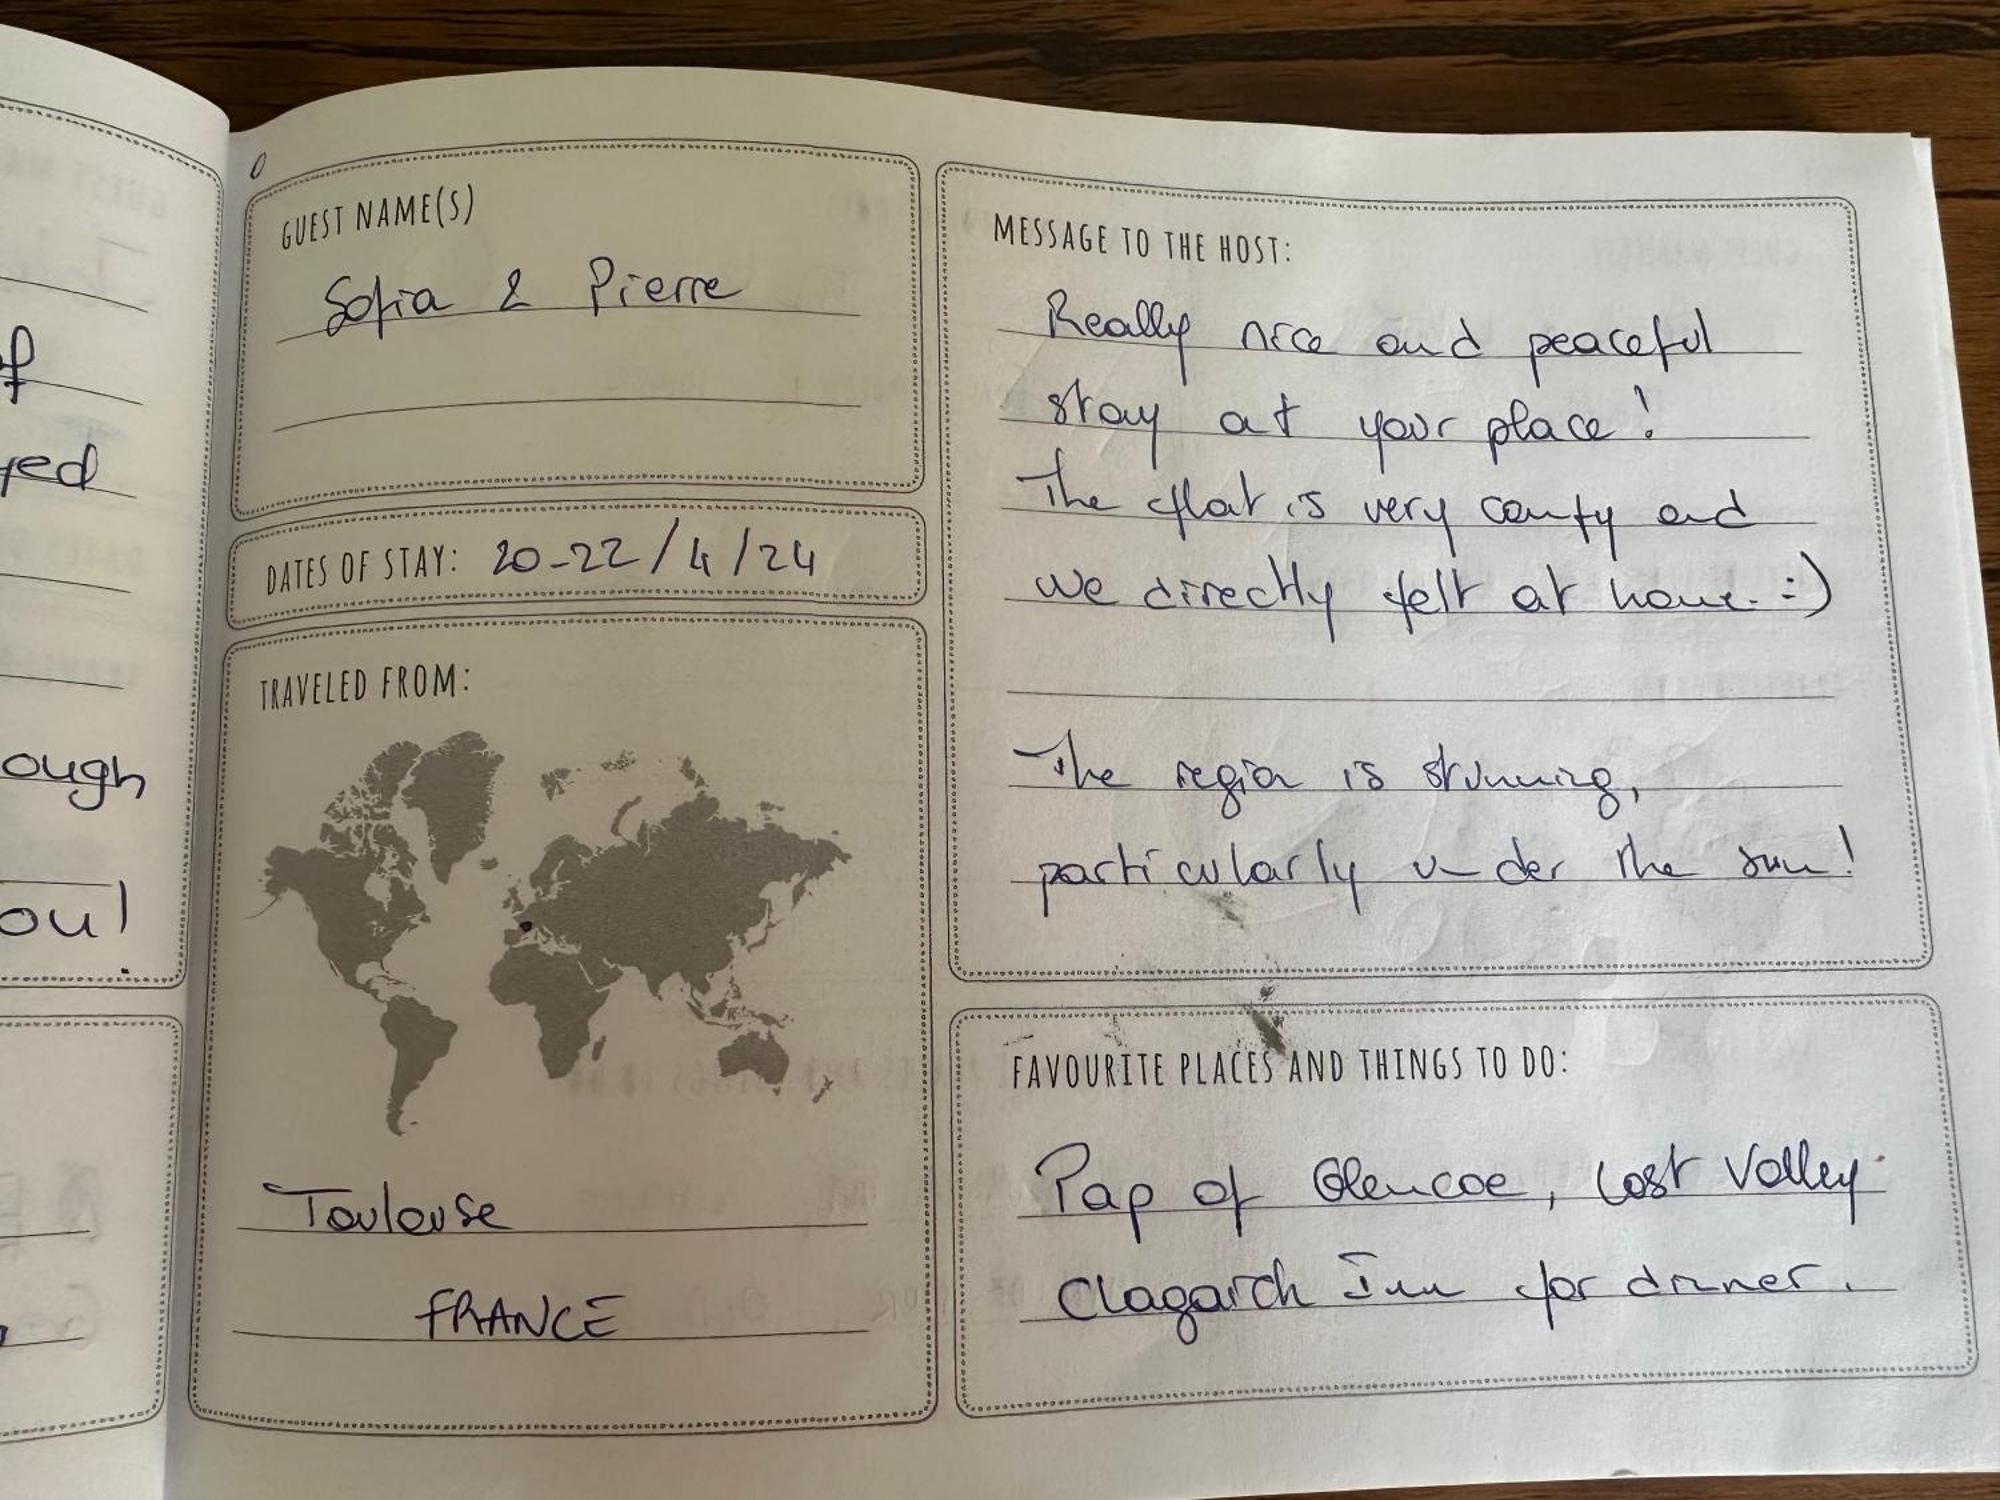 f
yed
ough
oul
GUEST NAME(S)
Sofia & Pierre
DATES OF STAY: 20-22/4/24
TRAVELED FROM:
Toulouse
FRANCE
MESSAGE TO THE HOST:
Really nice and peaceful
stay at your place!
The flat is very comfy and
we directly felt at home :)
The region is stunning,
particularly under the sun!
FAVOURITE PLACES AND THINGS TO DO:
Pap of Glencoe, Lost Valley
Clagaich Inn for dinner.